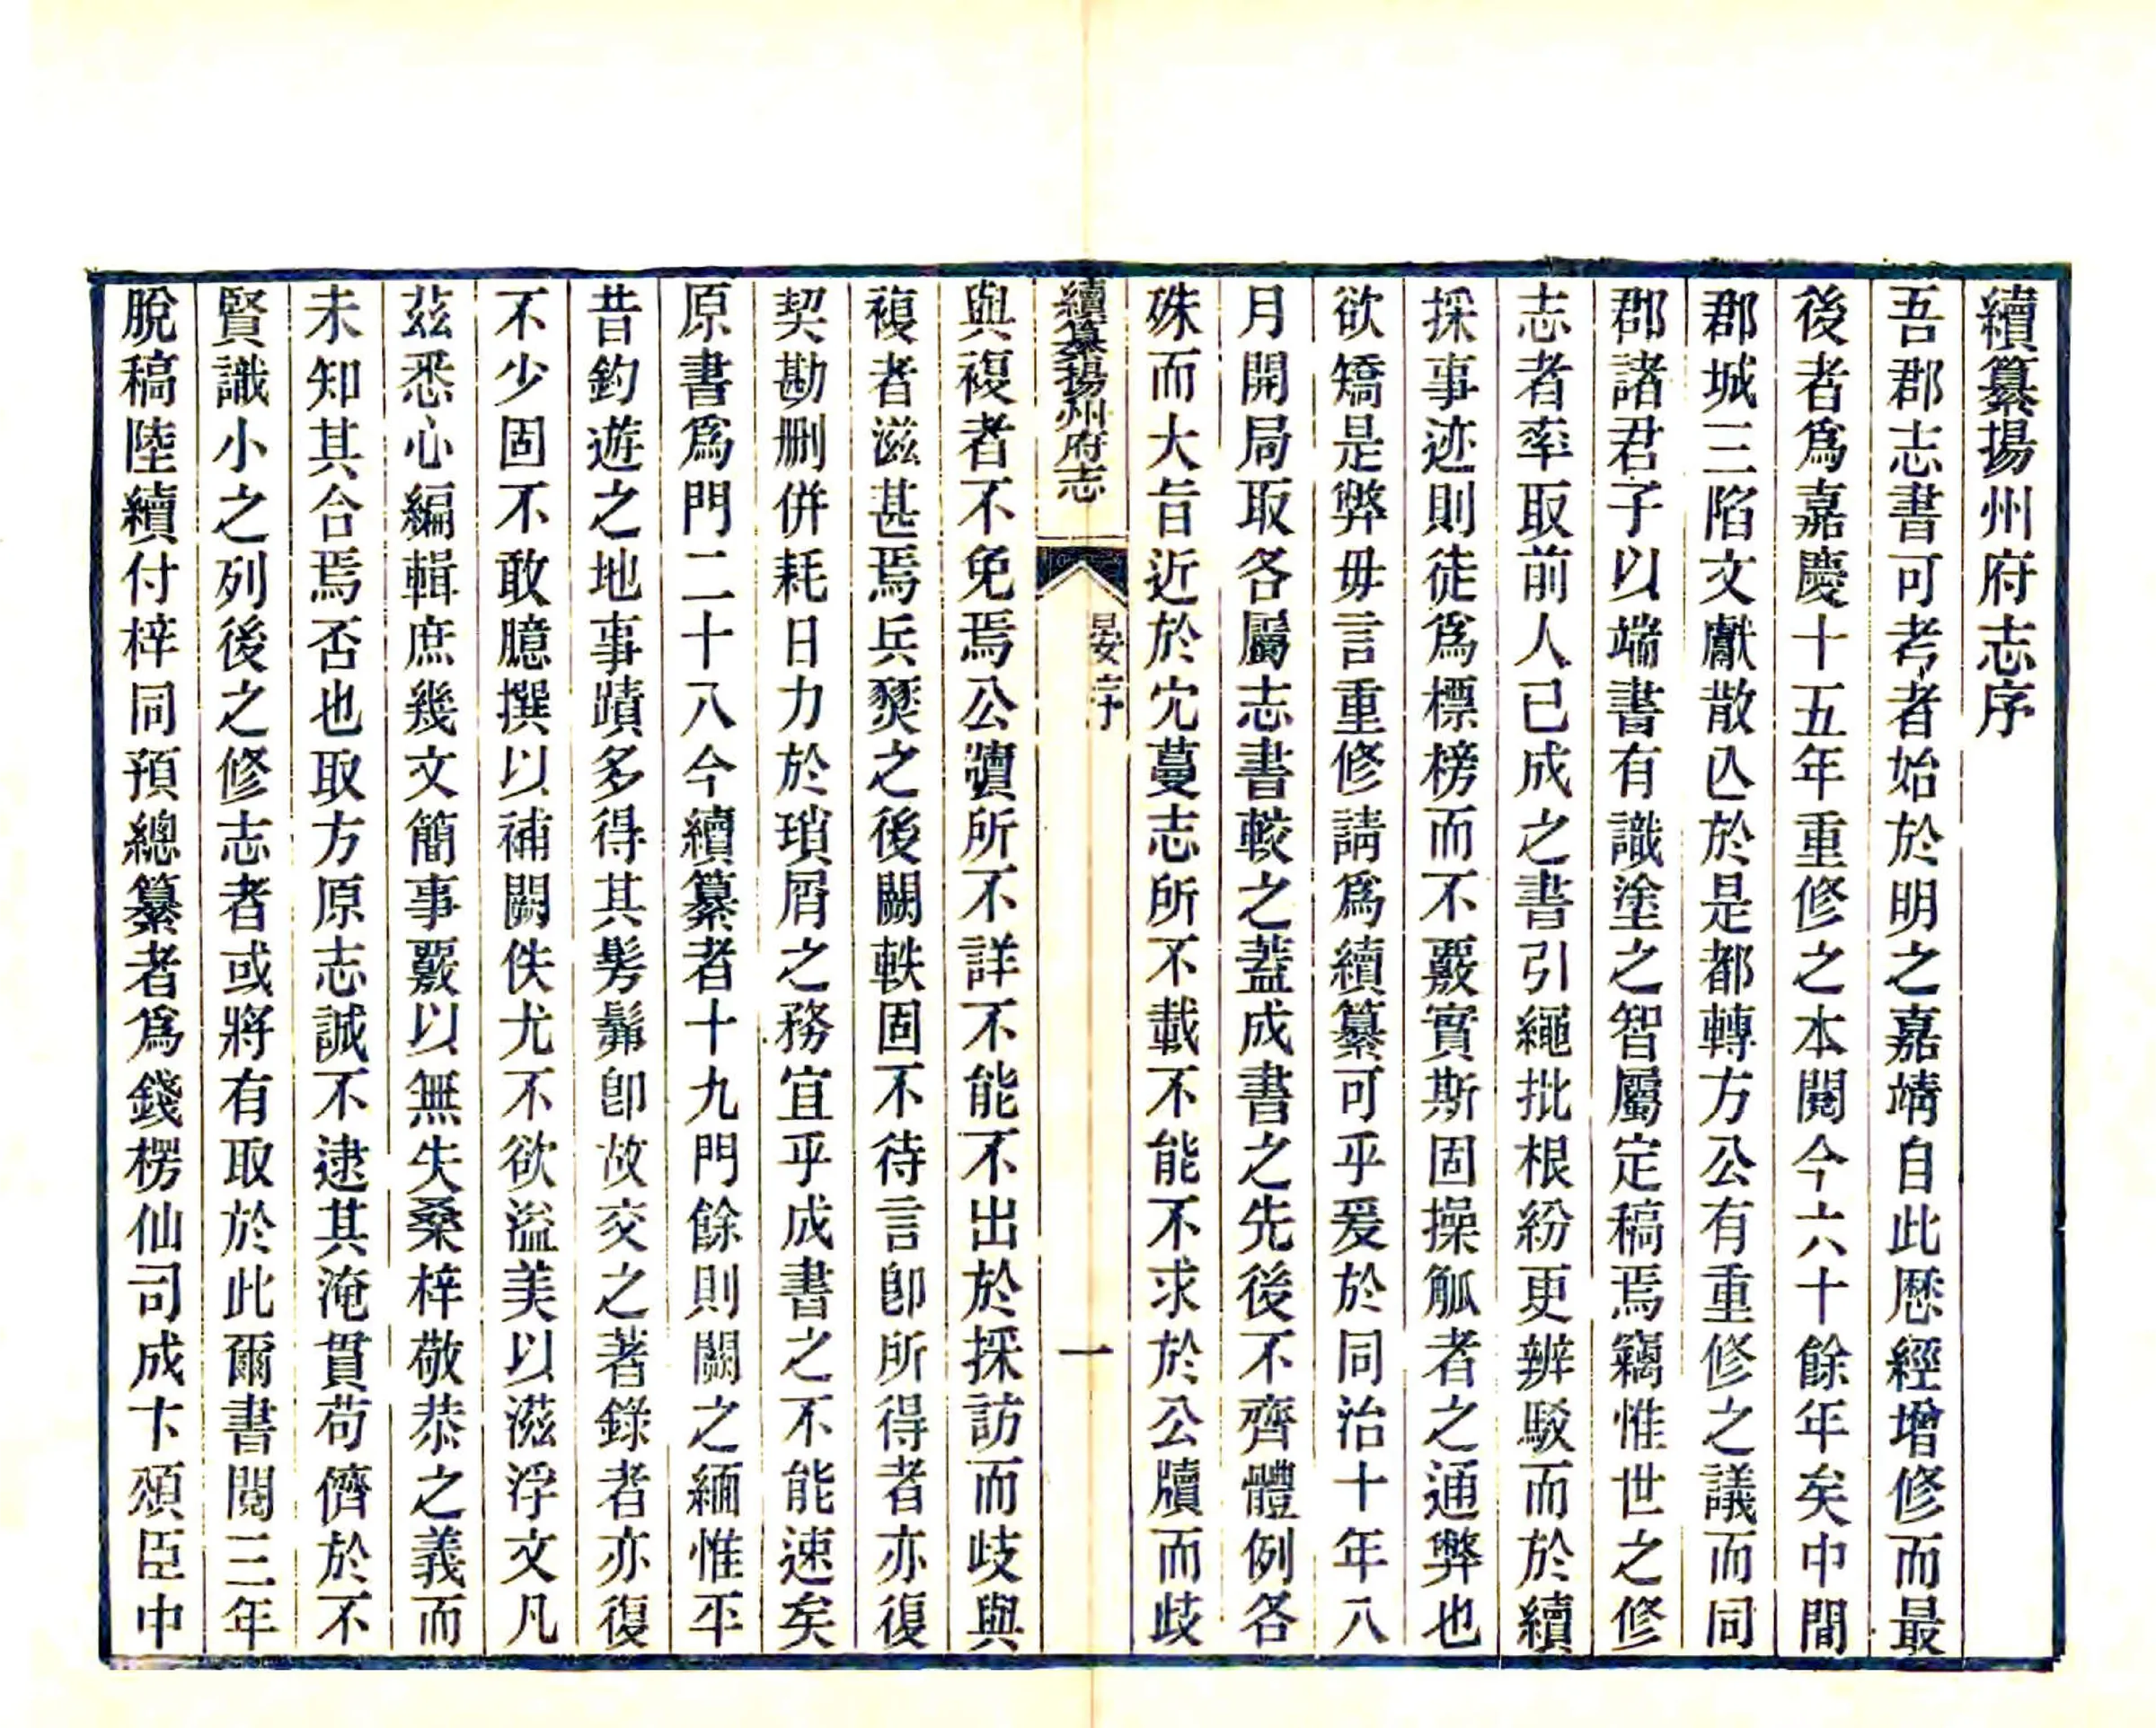 續纂揚州府志序
吾郡志書可考者始於明之嘉靖自此厯經增修而最
後者爲嘉慶十五年重修之本閱今六十餘年矣中間
郡城三陷文獻散亾於是都轉方公有重修之議而同
郡諸君子以端書有識塗之智屬定稿焉竊惟世之修
志者率取前人已成之書引繩批根紛更辨駁而於續
採事迹則徒爲標榜而不覈實斯固操觚者之通弊也
欲矯是弊毋言重修請爲續纂可乎爰於同治十年八
月開局取各屬志書較之蓋成書之先後不齊體例各
殊而大旨近於宂蔓志所不載不能不求於公牘而歧
續纂揚州府志
晏序
一
與複者不免焉公牘所不詳不能不出於採訪而歧與
複者滋甚焉兵燹之後闕軼固不待言卽所得者亦復
契勘删併耗日力於瑣屑之務宜乎成書之不能速矣
原書爲門二十八今續纂者十九門餘則闕之緬惟平
昔釣遊之地事蹟多得其髣髴卽故交之著錄者亦復
不少固不敢臆撰以補闕佚尤不欲溢美以滋浮文凡
茲悉心編輯庶幾文簡事覈以無失桑梓敬恭之義而
未知其合焉否也取方原志誠不逮其淹貫苟儕於不
賢識小之列後之修志者或將有取於此爾書閱三年
脫稿陸續付梓同預總纂者爲錢楞仙司成卞頌臣中